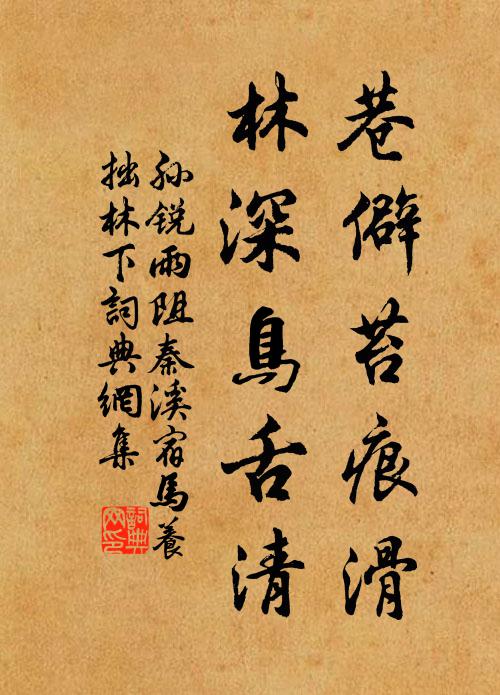 巷僻苔痕滑
林深鳥舌清
孫銳雨阻秦溪宿馬養
拙林下詞典網集
詞典網印